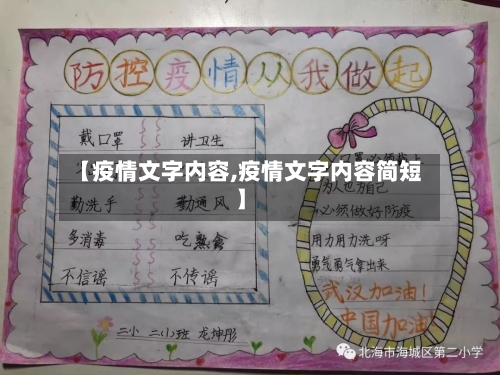 防控疫情从我做起
戴口罩 讲卫生
【疫情文字内容,疫情文字内容简短
】
勤洗手 勤通风
多消毒 吃熟食
不信谣 不传谣
为人也为自己
必须做好防疫
用力用力洗呀
勇气勇气拿出来
武汉加油!
中国加油
二小 二(小)班 龙坤彤
北海市海城区第二小学